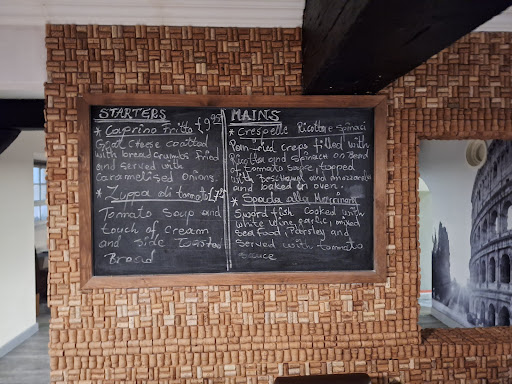 STARTERS
* Caprino Fritto
Goat Cheese coatted
with breadcrumbs fried
and served with
caramelised onions.
* Zuppa di tomato
Tomato Soup and
touch of cream
and side Toasted
Bread
MAINS
* Crespelle Ricotta e Spinaci
Pan-fried creps filled with
Ricotta and Spinach on bead
of tomato sauce, topped
with beschamel and mozzarella
and baked in oven.
* Spada alla Marinara
Sword fish cooked with
white wine, garlic, mixed
sea food, Parsley and
served with tomato
sauce